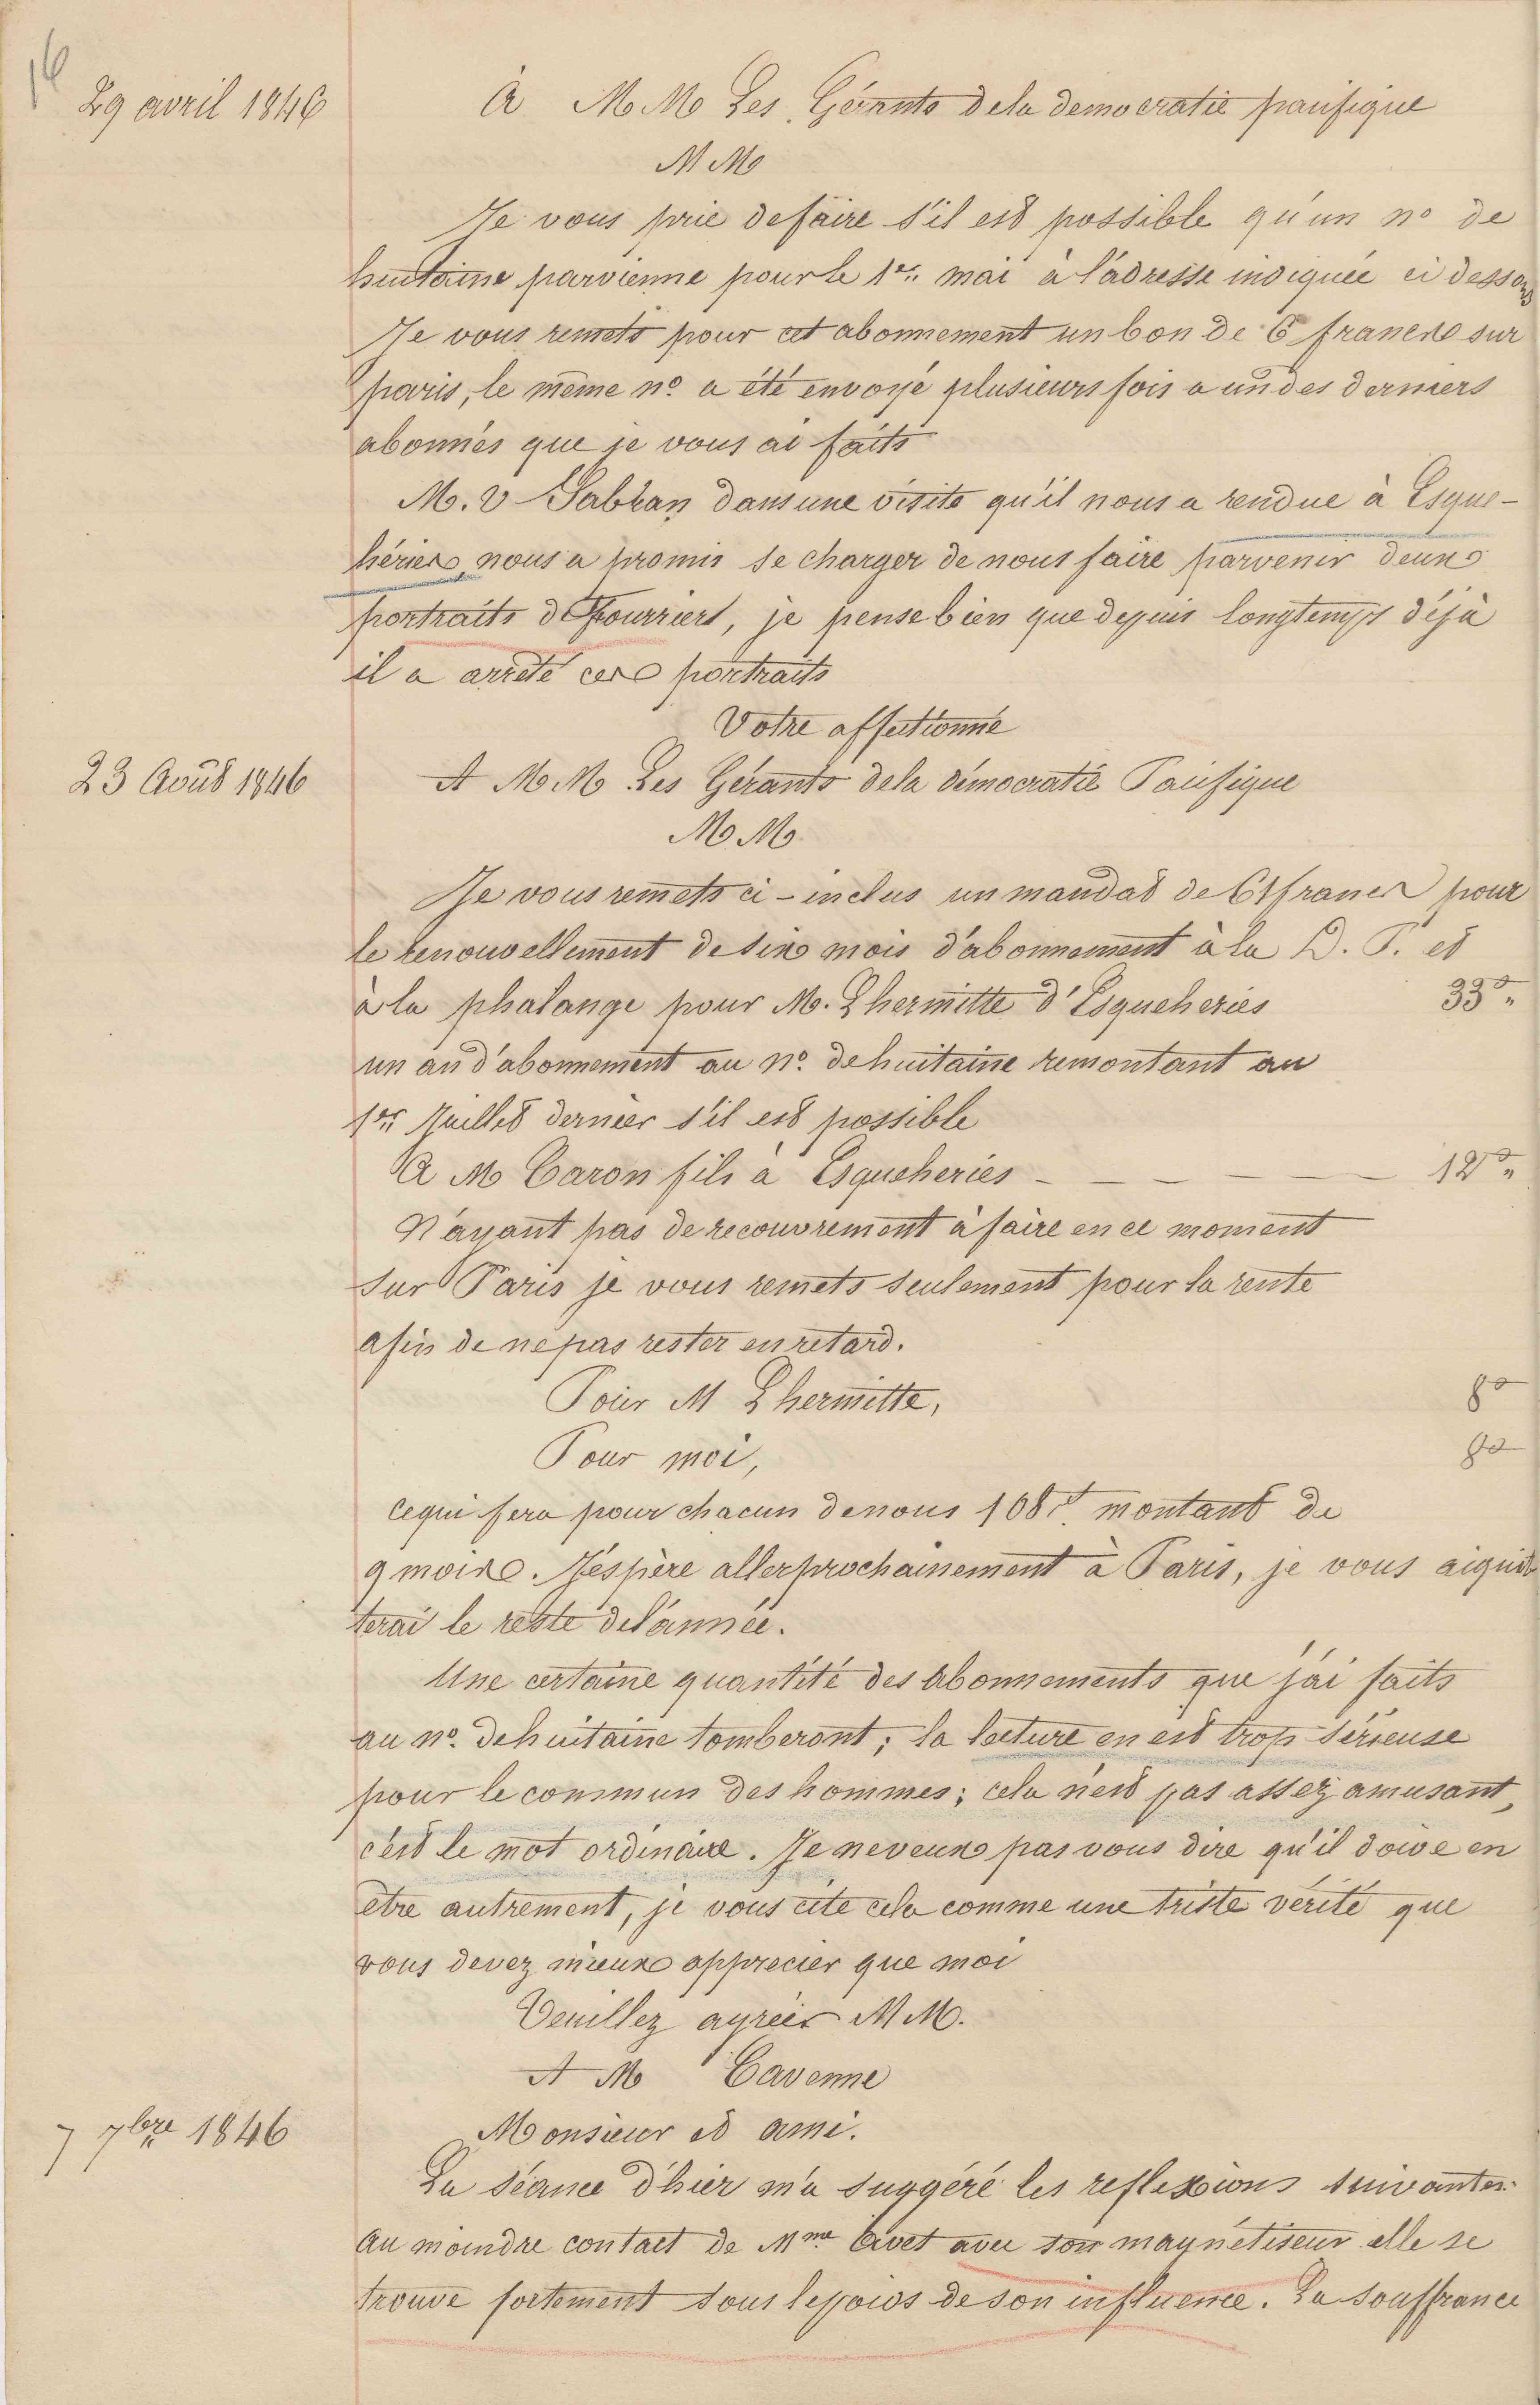 16
29 avril 1846
A M M Les Gérants de la democratie pacifique
M M
Je vous prie de faire s'il est possible qu'un no de
huitaine parvienne pour le 1er mai à l'adresse indiquée ci dessous
Je vous remets pour cet abonnement un bon de 6 francs sur
paris, le même no a été envoyé plusieurs fois a un des derniers
abonnés que je vous ai faits
M. v Sabran dans une visite qu'il nous a rendue à Esque-
héries nous a promis se charger de nous faire parvenir deux
portraits de Fourriert, je pense bien que depuis longtemps déjà
il a arrêté ces portraits
Votre affectionné
23 Août 1846
A M M Les Gérants de la démocratie Pacifique
M M
Je vous remets ci-inclus un mandat de 61 francs pour
le renouvellement de six mois d'abonnement à la D. P. et
à la phalange pour M. Lhermitte d'Esqueheries 33 "
un an d'abonnement au no. de huitaine remontant au
1er Juillet dernier s'il est possible
A M Caron fils à Esqueheries - - - - - 12 "
N'ayant pas de recouvrement à faire en ce moment
sur Paris je vous remets seulement pour la rente
afin de ne pas rester en retard.
Pour M Lhermitte, 8
Pour moi, 8
ce qui fera pour chacun de nous 108 f. montant de
9 mois. J'espère aller prochainement à Paris, je vous aiquit
terai le reste de l'année.
Une certaine quantité des abonnements que j'ai faits
au no. de huitaine tomberont; la lecture en est trop sérieuse
pour le commun des hommes; cela n'est pas assez amusant,
c'est le mot ordinaire. Je ne veux pas vous dire qu'il doive en
être autrement, je vous cite cela comme une triste vérité que
vous devez mieux apprecier que moi
Veuillez agréer M M.
A M Cavenne
7 7bre 1846
Monsieur et ami.
La séance d'hier m'a suggéré les reflexions suivantes:
Au moindre contact de Mme avec son magnétiseur elle se
trouve fortement sous le poids de son influence. La souffrance